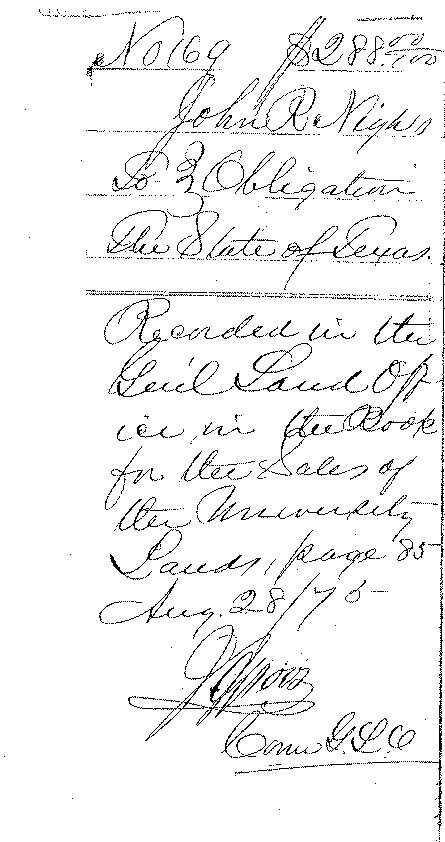 No 169 $288.00/100
John R.
To } Obligation
The State of Texas.
Recorded in the
Gen'l Land Off
ice in the Book
for the Sales of
the University
Lands, page 85
Aug. 28/75
Com G.L.O